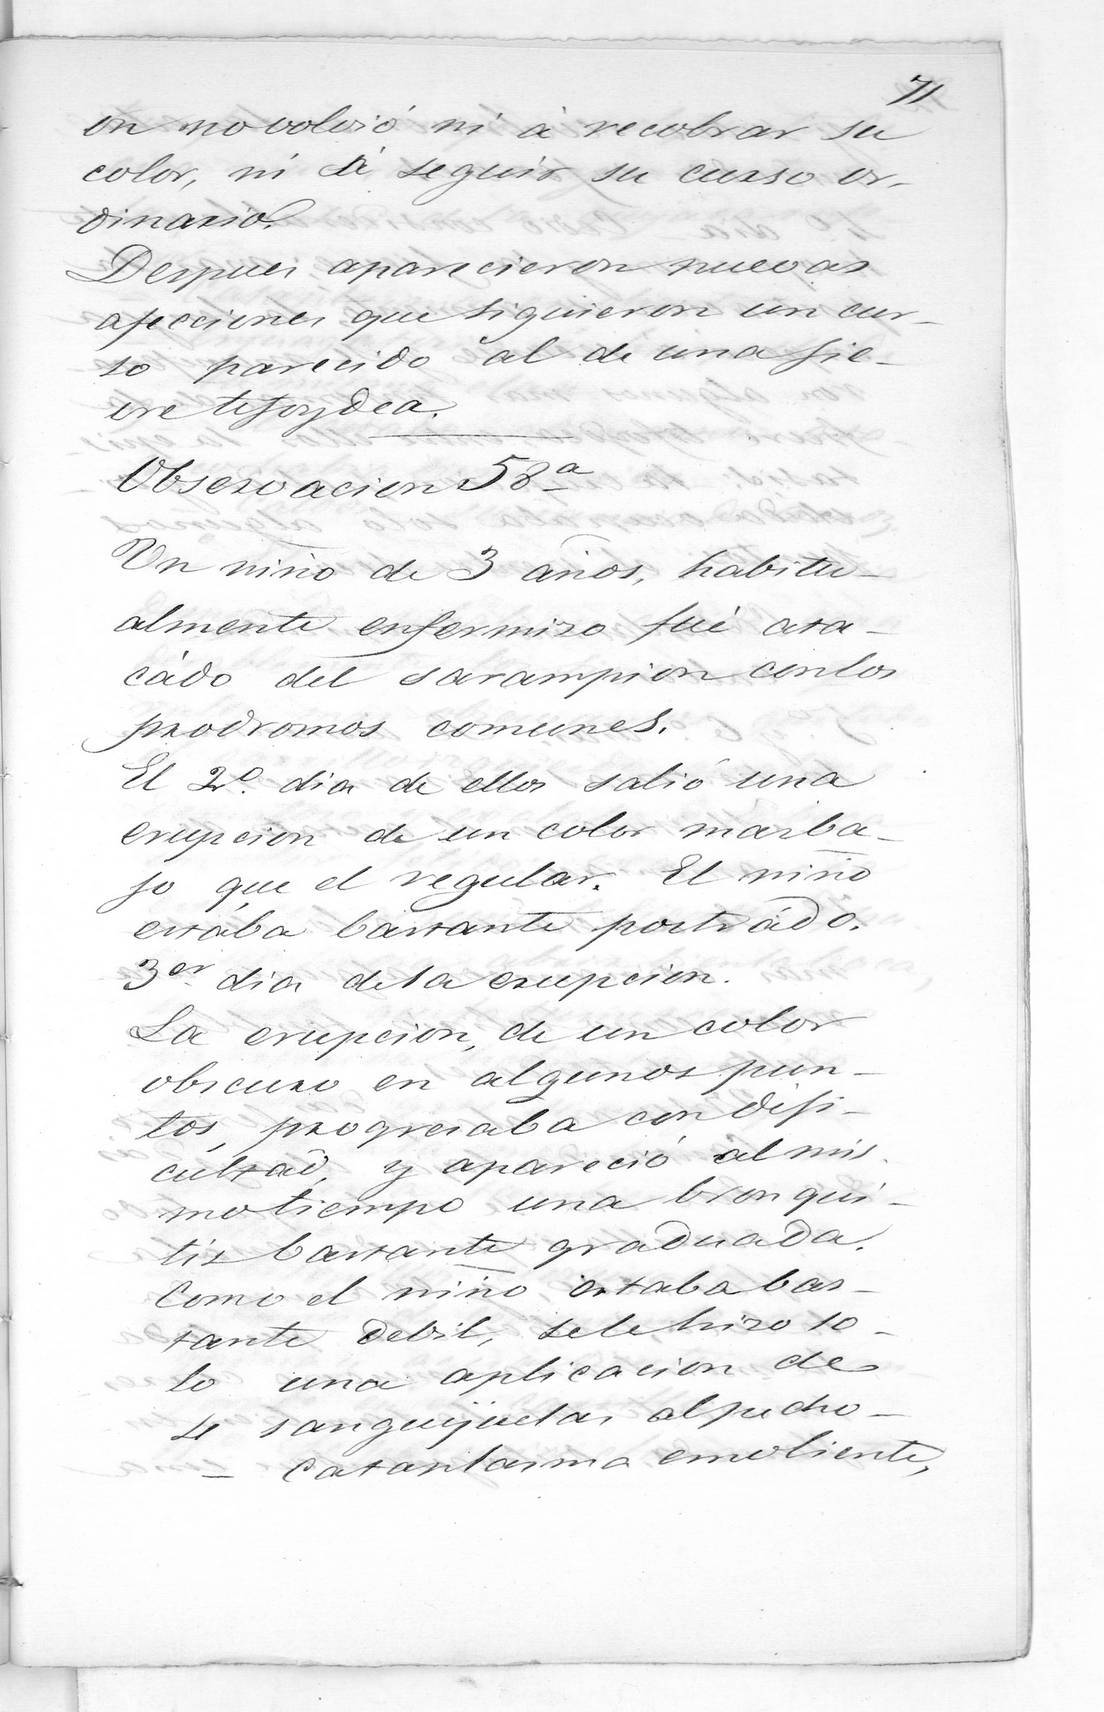 71
on no volvió ni á recobrar su
color, ni á seguir su curso or-
dinario.
Despues aparecieron nuevas
afecciones que siguieron un cur-
so parecido al de una fie-
vre tifoydea.
Observacion 58ª
Un niño de 3 años, habitu-
almente enfermizo fué ata-
cádo del sarampion con los
prodromos comunes.
El 2º. dia de ellos salió una
erupcion de un color mas ba-
jo que el regular. El niño
estába bastante postrádo.
3er. dia de la erupcion.
La erupcion, de un color
obscuro en algunos pun-
tos, progresaba con difi-
cultad, y apareció al mis-
mo tiempo una bronqui-
tis bastante graduada.
Como el niño estaba bas-
tante debil, se le hizo so-
lo una aplicacion de
4 sanguijuelas al pecho-
- Cataplasma emoliente,